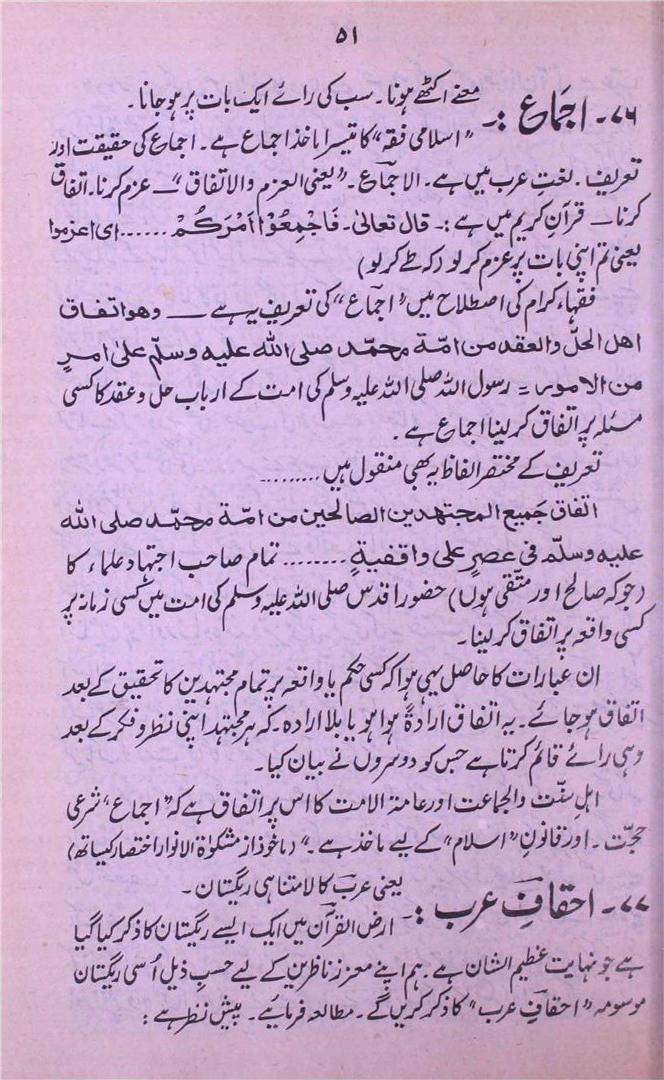 ۵۱
معنے اکٹھے ہونا۔ سب کی رائے ایک بات پر ہو جانا۔
۷۶۔ اجماع :۔
"اسلامی فقہ" کا تیسرا ماخذ اجماع ہے۔ اجماع کی حقیقت اور
تعریف۔ لغتِ عرب میں ہے۔ الاجماع۔ "یعنی العزم والاتفاق" — عزم کرنا۔ اتفاق
کرنا — قرآن کریم میں ہے :۔ قال تعالیٰ۔ فَاجْمِعُوْا اَمْرَكُمْ ...... ای اعزموا
یعنی تم اپنی بات پر عزم کر لو (کہ طے کر لو)
فقہاء کرام کی اصطلاح میں "اجماع" کی تعریف یہ ہے — وهو اتفاق
اهل الحلّ والعقد من امّة محمّد صلی الله علیه وسلّم علیٰ امرٍ
من الامور = رسول اللہ صلی اللہ علیہ وسلم کی امت کے ارباب حل و عقد کا کسی
مسئلہ پر اتفاق کر لینا اجماع ہے۔
تعریف کے مختصر الفاظ یہ بھی منقول ہیں ........
اتفاق جمیع المجتهدین الصالحین من امّة محمّد صلی الله
علیه وسلّم فی عصرٍ علیٰ واقفیةٍ ........ تمام صاحب اجتہاد علماء کا
(جو کہ صالح اور متقی ہوں) حضور اقدس صلی اللہ علیہ وسلم کی امت میں کسی زمانہ پر
کسی واقعہ پر اتفاق کر لینا۔
ان عبارات کا حاصل یہی ہوا کہ کسی حکم یا واقعہ پر تمام مجتہدین کا تحقیق کے بعد
اتفاق ہو جائے۔ یہ اتفاق ارادۃً ہوا ہو یا بلا ارادہ۔ کہ ہر مجتہد اپنی نظر و فکر کے بعد
وہی رائے قائم کرتا ہے جس کو دوسروں نے بیان کیا۔
اہلِ سنّت والجماعت اور عامۃ الامت کا اس پر اتفاق ہے کہ "اجماع" شرعی
حجّت۔ اور قانونِ "اسلام" کے لیے ماخذ ہے۔" (ماخوذ از مشکوٰۃ الانوار اختصار کیساتھ)
یعنی عرب کا لامتناہی ریگستان۔
۷۷۔ احقافِ عرب :۔
ارض القرآن میں ایک ایسے ریگستان کا ذکر کیا گیا
ہے جو نہایت عظیم الشان ہے۔ ہم اپنے معزز ناظرین کے لیے حسبِ ذیل اُسی ریگستان
موسومہ "احقافِ عرب" کا ذکر کریں گے۔ مطالعہ فرمائیے۔ پیش نظر ہے :